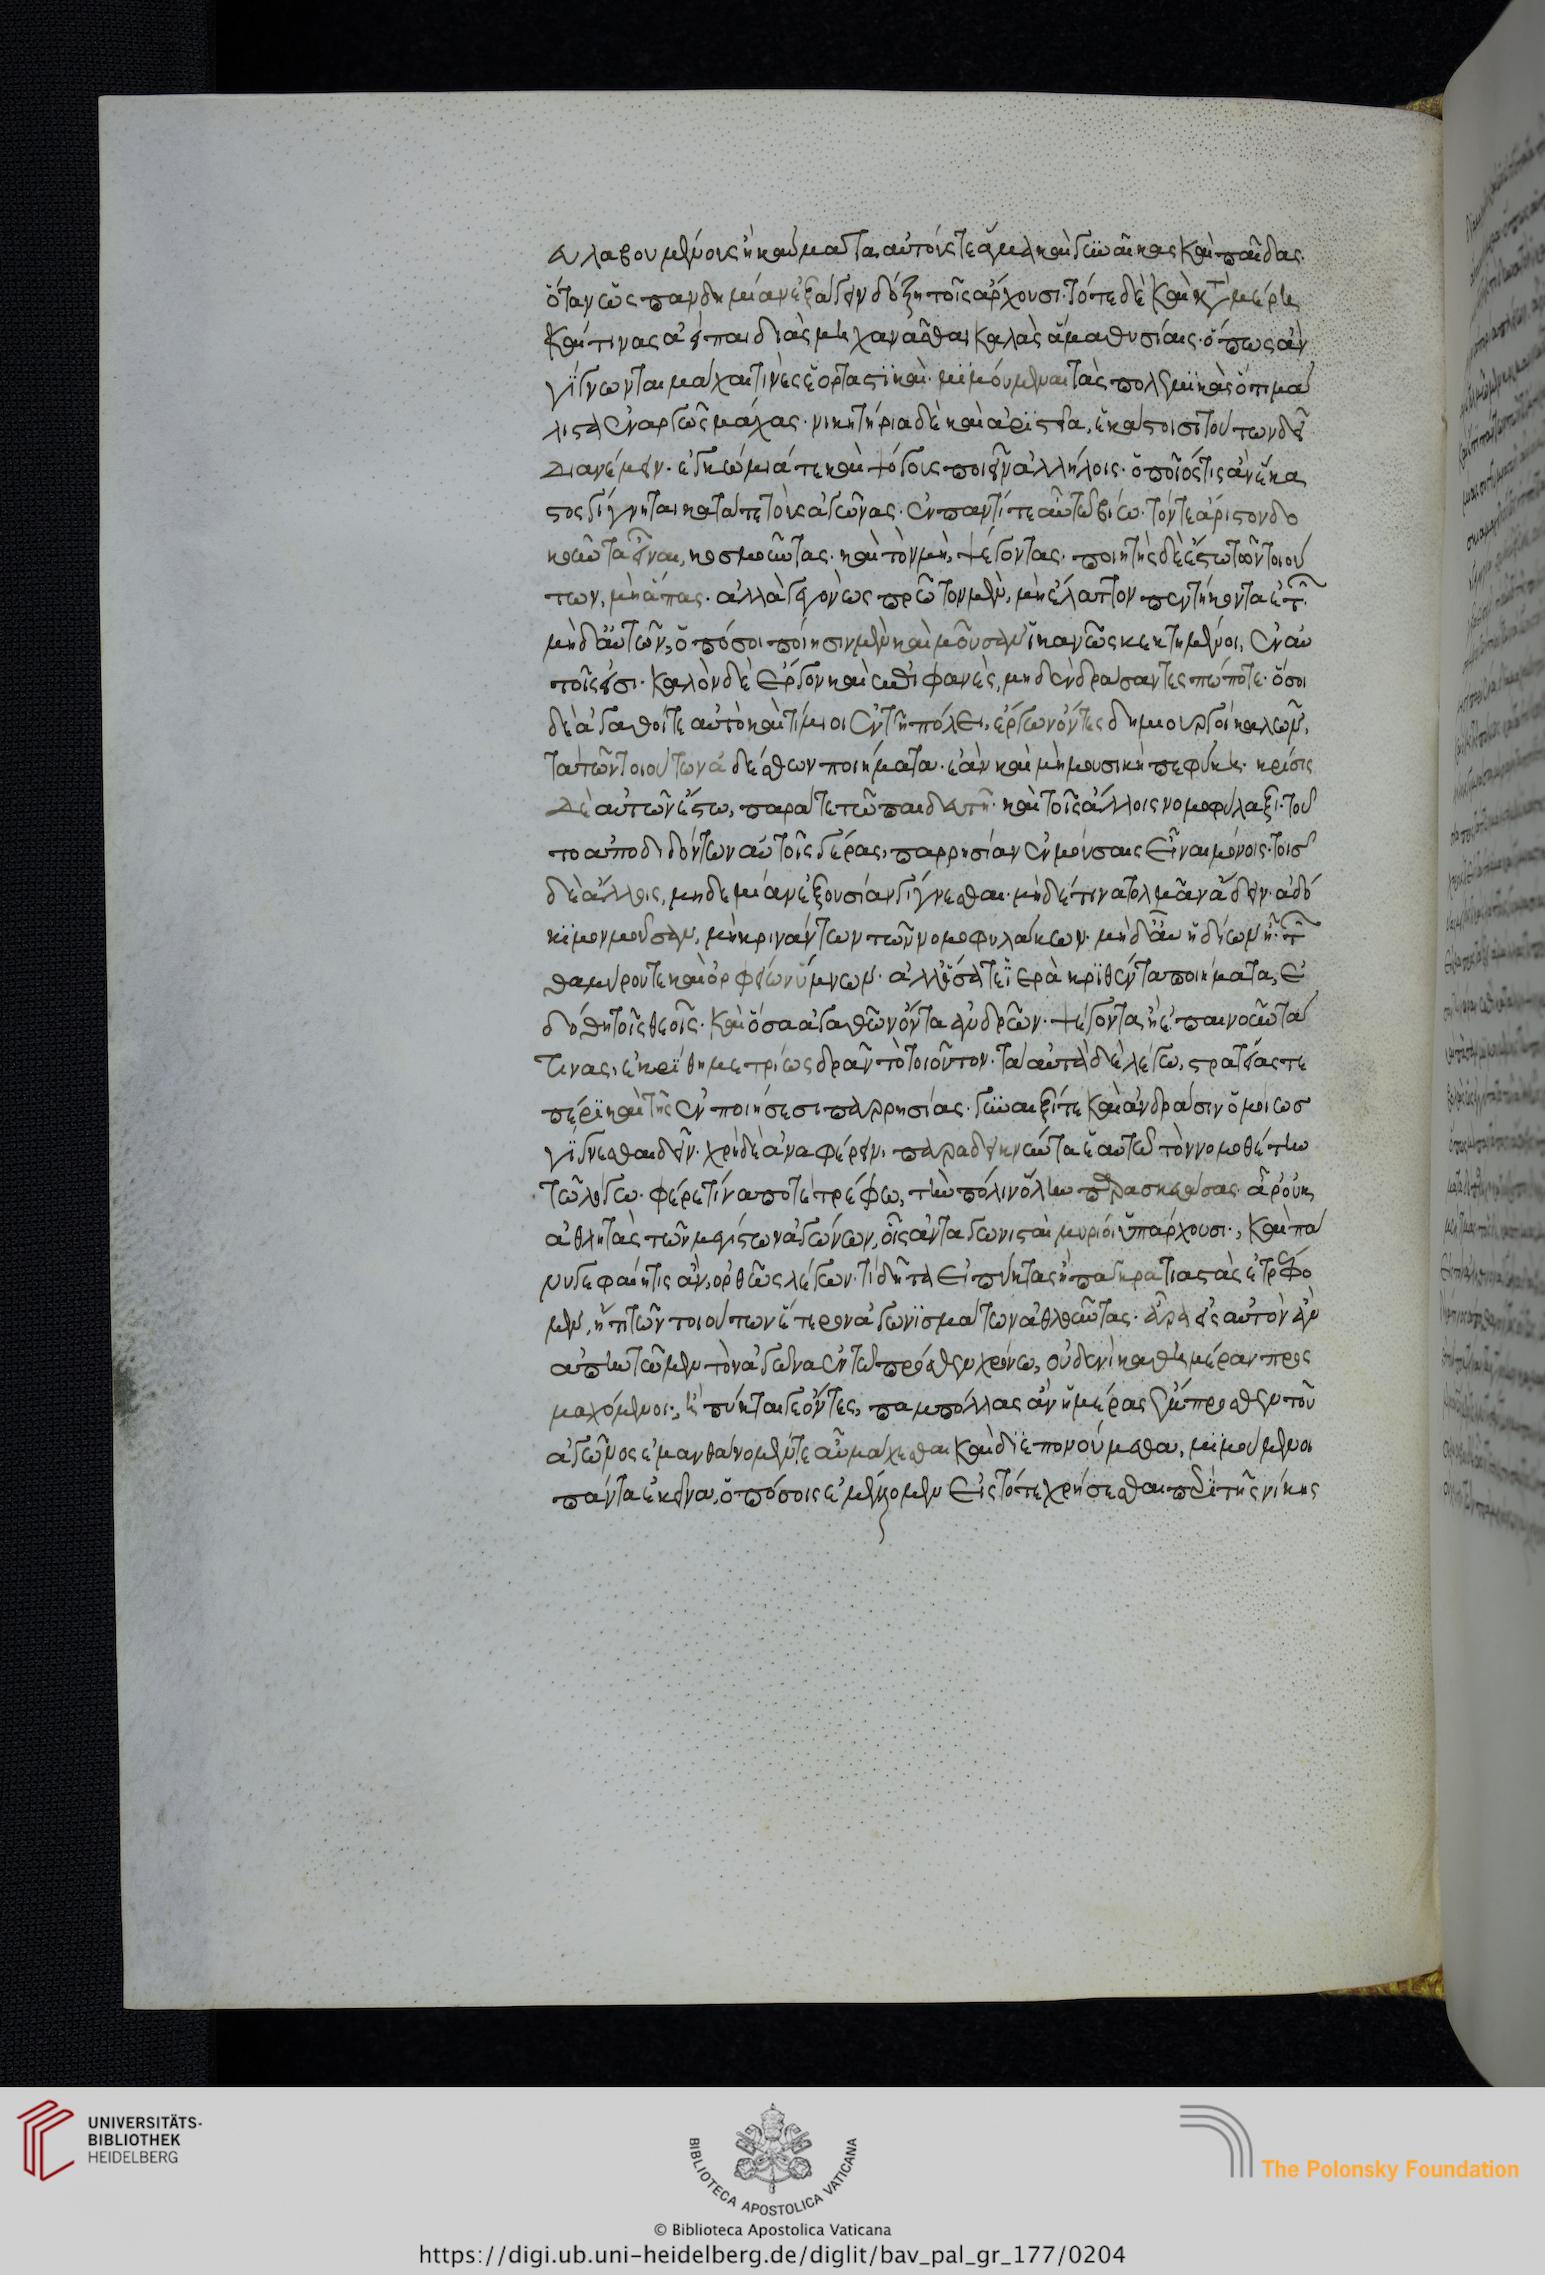 ευλαβουμένοις ἢ καύματα, αὐτούς τε ἅμα καὶ γυναῖκας καὶ παῖδας.
ὅταν ὡς πανδημίαν ἐξάγειν δόξῃ τοῖς ἄρχουσι· τότε δὲ καὶ κατὰ μέρη
καί τινας ἀεὶ παιδιὰς μηχανᾶσθαι καλὰς ἅμα θυσίαις· ὅπως ἂν
γίγνωνται μάχαι τινὲς ἑορταστικαὶ· μιμούμεναι τὰς πολεμικὰς ὅτι μά
λιστα ἐναργῶς μάχας· νικητήρια δὲ καὶ ἀριστεῖα, ἑκάστοισι τούτων δεῖ
διανέμειν· ἐγκώμιά τε καὶ ψόγους ποιεῖν ἀλλήλοις· ὁποῖός τις ἂν ἕκα
στος γίγνηται κατά τε τοὺς ἀγῶνας· ἐν παντί τε αὖ τῷ βίῳ· τόν τε ἄριστον δο
κοῦντα εἶναι, κοσμοῦντας· καὶ τὸν μὴ, ψέγοντας· ποιητὴς δὲ ἔστω τῶν τοιού
των, μὴ ἅπας· ἀλλὰ γεγονὼς πρῶτον μὲν, μὴ ἔλαττον πεντήκοντα ἐτῶν·
μὴ δ' αὖ τῶν, ὁπόσοι ποίησιν μὲν καὶ μοῦσαν ἱκανῶς κεκτημένοι, ἐν αὑ
τοῖς εἰσι· καλὸν δὲ ἔργον καὶ ἐπιφανὲς, μηδὲν δράσαντες πώποτε· ὅσοι
δὲ ἀγαθοί τε αὐτοὶ καὶ τίμιοι ἐν τῇ πόλει, ἔργων ὄντες δημιουργοὶ καλῶν,
τὰ τῶν τοιούτων ᾀδέσθων ποιήματα· ἐὰν καὶ μὴ μουσικὴ πεφύκῃ· κρίσις
δὲ αὐτῶν ἔστω, παρά τε τῷ παιδευτῇ· καὶ τοῖς ἄλλοις νομοφύλαξι· τοῦ
το ἀποδιδόντων αὐτοῖς γέρας, παρρησίαν ἐν μούσαις εἶναι μόνοις· τοῖσ
δὲ ἄλλοις, μηδεμίαν ἐξουσίαν γίγνεσθαι· μηδέ τινα τολμᾶν ᾄδειν· ἀδό
κιμον μοῦσαν, μὴ κρινάντων τῶν νομοφυλάκων· μὴ δ' ἂν ἡδίων ᾖ· τῶν
θαμύρου τε καὶ ὀρφείων ὕμνων· ἀλλ' ὅσα τε ἱερὰ κριθέντα ποιήματα, ἐ
δόθη τοῖς θεοῖς· καὶ ὅσα ἀγαθῶν ὄντα ἀνδρῶν· ψέγοντα ἢ ἐπαινοῦντά
τινας, ἐκρίθη μετρίως δρᾶν τὸ τοιοῦτον· τὰ αὐτὰ δὲ λέγω, στρατείας τε
πέρι καὶ τῆς ἐν ποιήσεσι παρρησίας· γυναιξί τε καὶ ἀνδράσιν ὁμοίωσ
γίγνεσθαι δεῖν· χρὴ δὲ ἀναφέρειν, παραδεικνύντα ἑαυτῷ τὸν νομοθέτην
τῷ λόγῳ· φέρε τίνα ποτὲ τρέφω, τὴν πόλιν ὅλην παρασκευάσας· ἆρ' οὐκ
ἀθλητὰς τῶν μεγίστων ἀγώνων, οἷς ἀνταγωνισταὶ μυρίοι ὑπάρχουσι·, καὶ πά
νυ γε φαίη τις ἂν, ὀρθῶς λέγων· τί δῆτα εἰ πύκτας ἢ παγκρατιαστὰς ἐτρέφο
μεν, ἤ τι τῶν τοιούτων ἕτερον ἀγωνισμάτων ἀθλοῦντας· ἆρα εἰς αὐτὸν ἂν
ἀπηντῶμεν τὸν ἀγῶνα ἐν τῷ πρόσθεν χρόνῳ, οὐδενὶ καθ' ἡμέραν προσ
μαχόμενοι·, ἢ πύκται γε ὄντες, παμπόλλας ἂν ἡμέρας ἔμπροσθεν τοῦ
ἀγῶνος ἐμανθάνομέν τε αὖ μάχεσθαι καὶ διεπονούμεθα, μιμούμενοι
πάντα ἐκεῖνα, ὁπόσοις ἐμέλλομεν εἰς τότε χρήσεσθαι περὶ τῆς νίκης
UNIVERSITÄTS-
BIBLIOTHEK
HEIDELBERG
BIBLIOTECA APOSTOLICA VATICANA
The Polonsky Foundation
© Biblioteca Apostolica Vaticana
https://digi.ub.uni-heidelberg.de/diglit/bav_pal_gr_177/0204